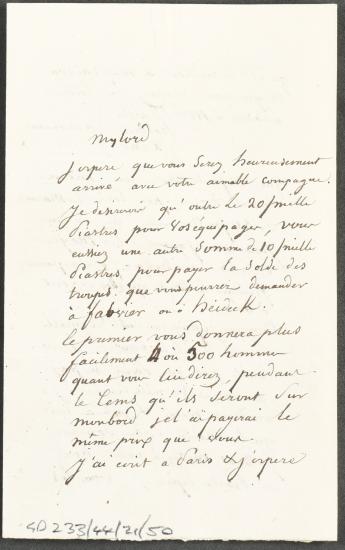 Mylord
J'espere que vous Serez heureusement
arrivé avec votre aimable compagne.
Je desirerois qu'outre le 20/mille
Piastres pour vos équipages, vous
eussiez une autre Somme de 10/mille
Piastres pour payer la Solde des
troupes que vous pourrez demander
à fabvier ou à heideck.
le premier vous donnera plus
facilement 4 où 500 hommes
quant vous lui direz, pendant
le tems qu'ils Seront Sur
monbord je l'ai payerai le
même prix que vous.
J'ai ecrit a Paris & j'espere
GD233/44/21/50